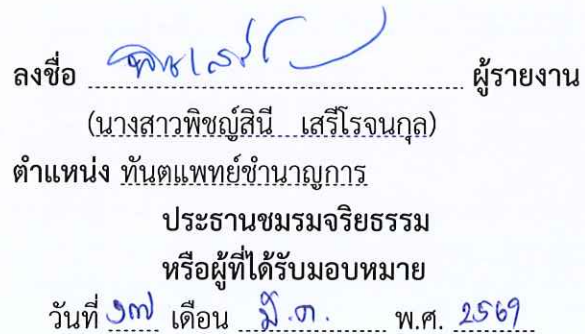 ลงชื่อ ผู้รายงาน
(นางสาวพิชญ์สินี เสรีโรจนกุล)
ตำแหน่ง ทันตแพทย์ชำนาญการ
ประธานชมรมจริยธรรม
หรือผู้ที่ได้รับมอบหมาย
วันที่ ๑๗ เดือน มี.ค. พ.ศ. 2569